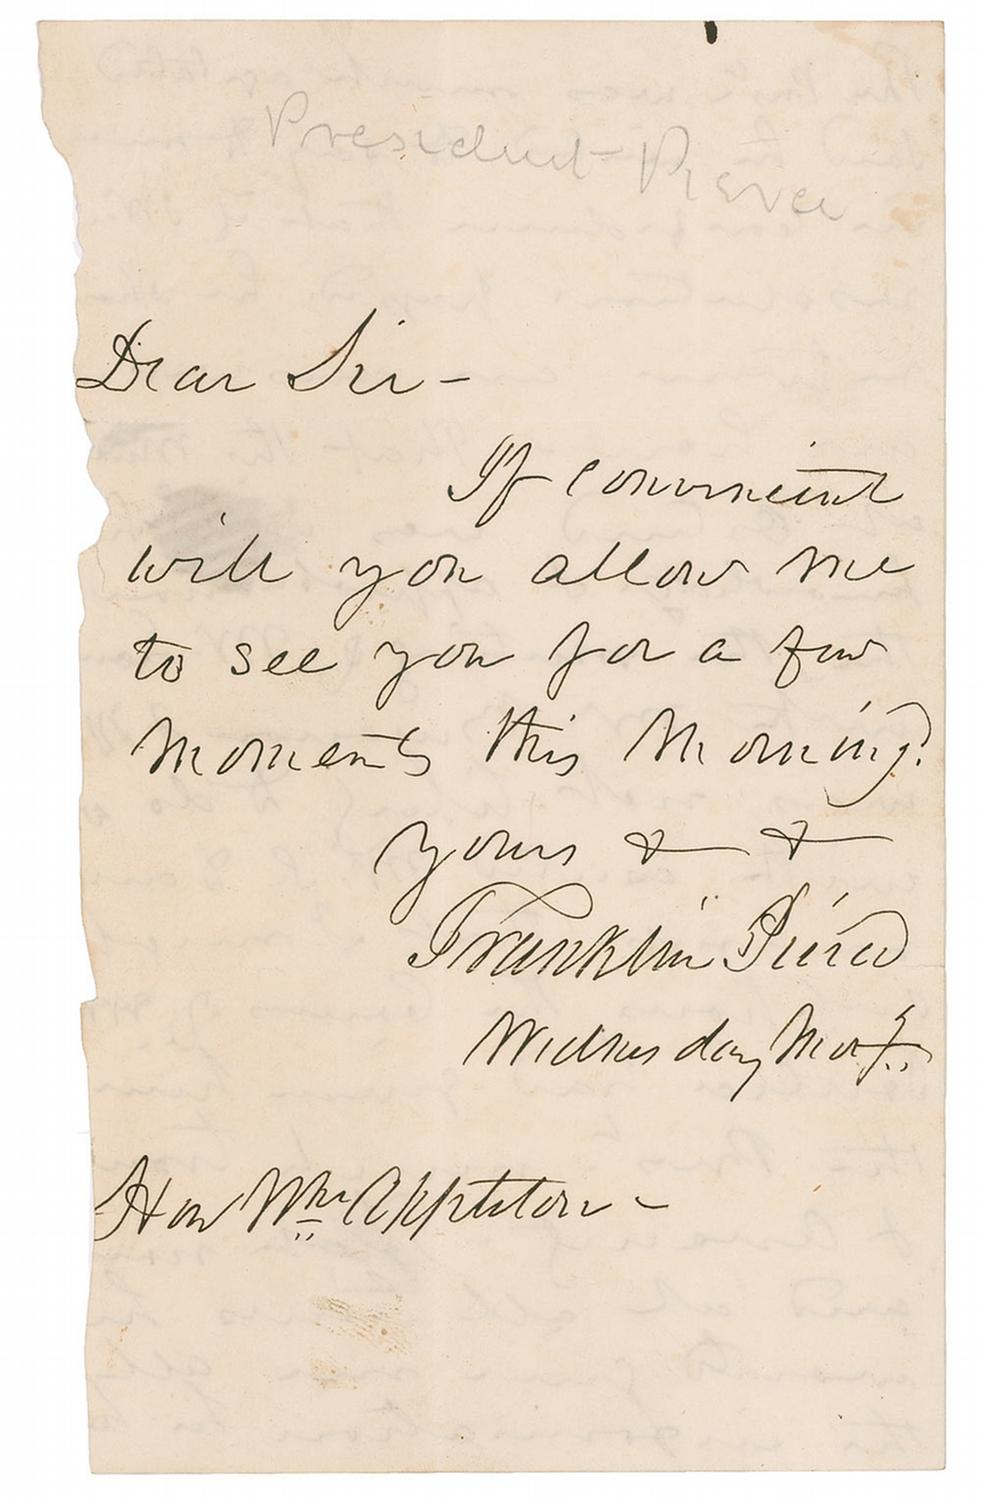 President Pierce
Dear Sir -
If convenient
will you allow me
to see you for a few
moments this morning?
yours & &
Franklin Pierce
Wednesday
Hon Wm Appleton -